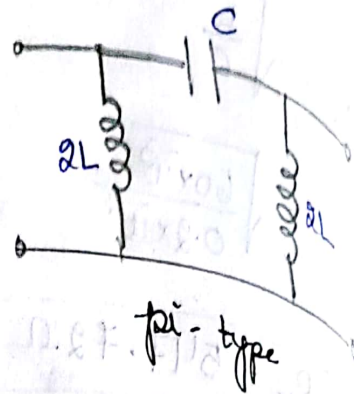 C
2L
2L
pi-type